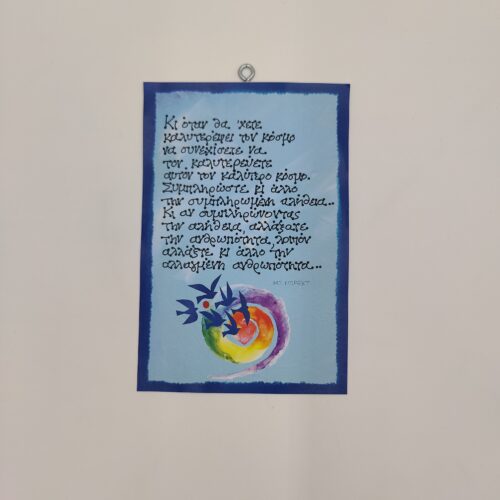 Κι όταν θα 'χετε
καλυτερέψει τον κόσμο
να συνεχίσετε να
τον καλυτερεύετε
αυτόν τον καλύτερο κόσμο.
Συμπληρώστε κι άλλο
την συμπληρωμένη αλήθεια...
Κι αν συμπληρώνοντας
την αλήθεια, αλλάξατε
την ανθρωπότητα, λοιπόν
αλλάξτε κι άλλο την
αλλαγμένη ανθρωπότητα...
ΜΠ. ΜΠΡΕΧΤ